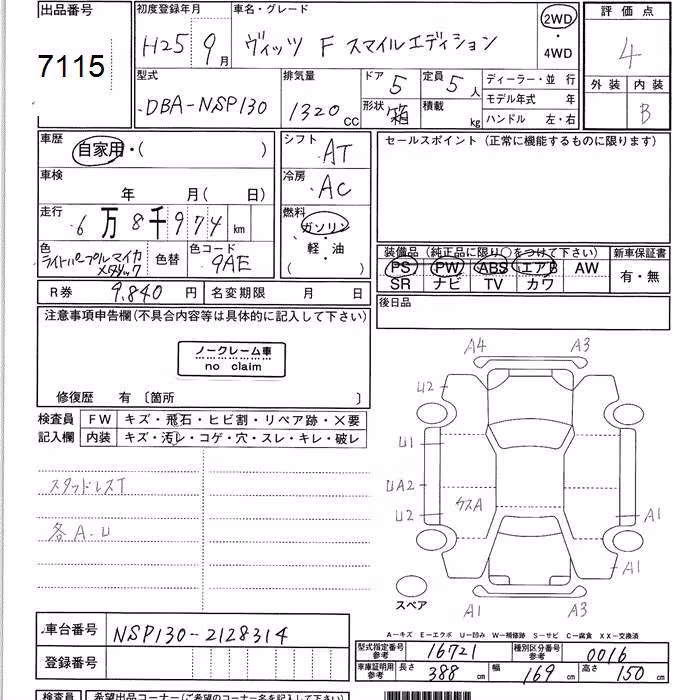 出品番号
7115
初度登録年月
H25 9月
車名・グレード
ヴィッツ F スマイルエディション
2WD
・
4WD
評価点
4
外装 内装
B
型式
DBA-NSP130
排気量
1320cc
ドア 5
形状 箱
定員 5人
積載 kg
ディーラー・並 行
モデル年式 年
ハンドル 左・右
車歴
自家用・( )
車検
年 月( 日)
走行
6万8千974km
シフト
AT
冷房
AC
燃料
ガソリン
・
軽・油
( )
色
ライトパープルマイカ
メタリック
色替
色コード
9AE
R券 9,840円
名変期限 月 日
セールスポイント(正常に機能するものに限ります)
装備品(純正品に限り○をつけて下さい)
PS PW ABS エアB AW
SR ナビ TV カワ
新車保証書
有・無
後日品
注意事項申告欄(不具合内容等は具体的に記入して下さい)
ノークレーム車
no claim
修復歴 有 〔箇所 〕
検査員
記入欄
FW キズ・飛石・ヒビ割・リペア跡・×要
内装 キズ・汚レ・コゲ・穴・スレ・キレ・破レ
スタッドレスT
各A.U
A4 A3
U2
U1
UA2
U2
ケスA
A1
A1
A1 A3
スペア
A-キズ E-エクボ U-凹み W-補修跡 S-サビ C-腐食 XX-交換済
車台番号 NSP130-2128314
登録番号
型式指定番号
参考
16721
種別区分番号
参考
0016
車庫証明用
参考
長さ 388cm 幅 169cm 高さ 150cm
検査員
希望出品コーナー(ご希望のコーナー名を記入して下さい)